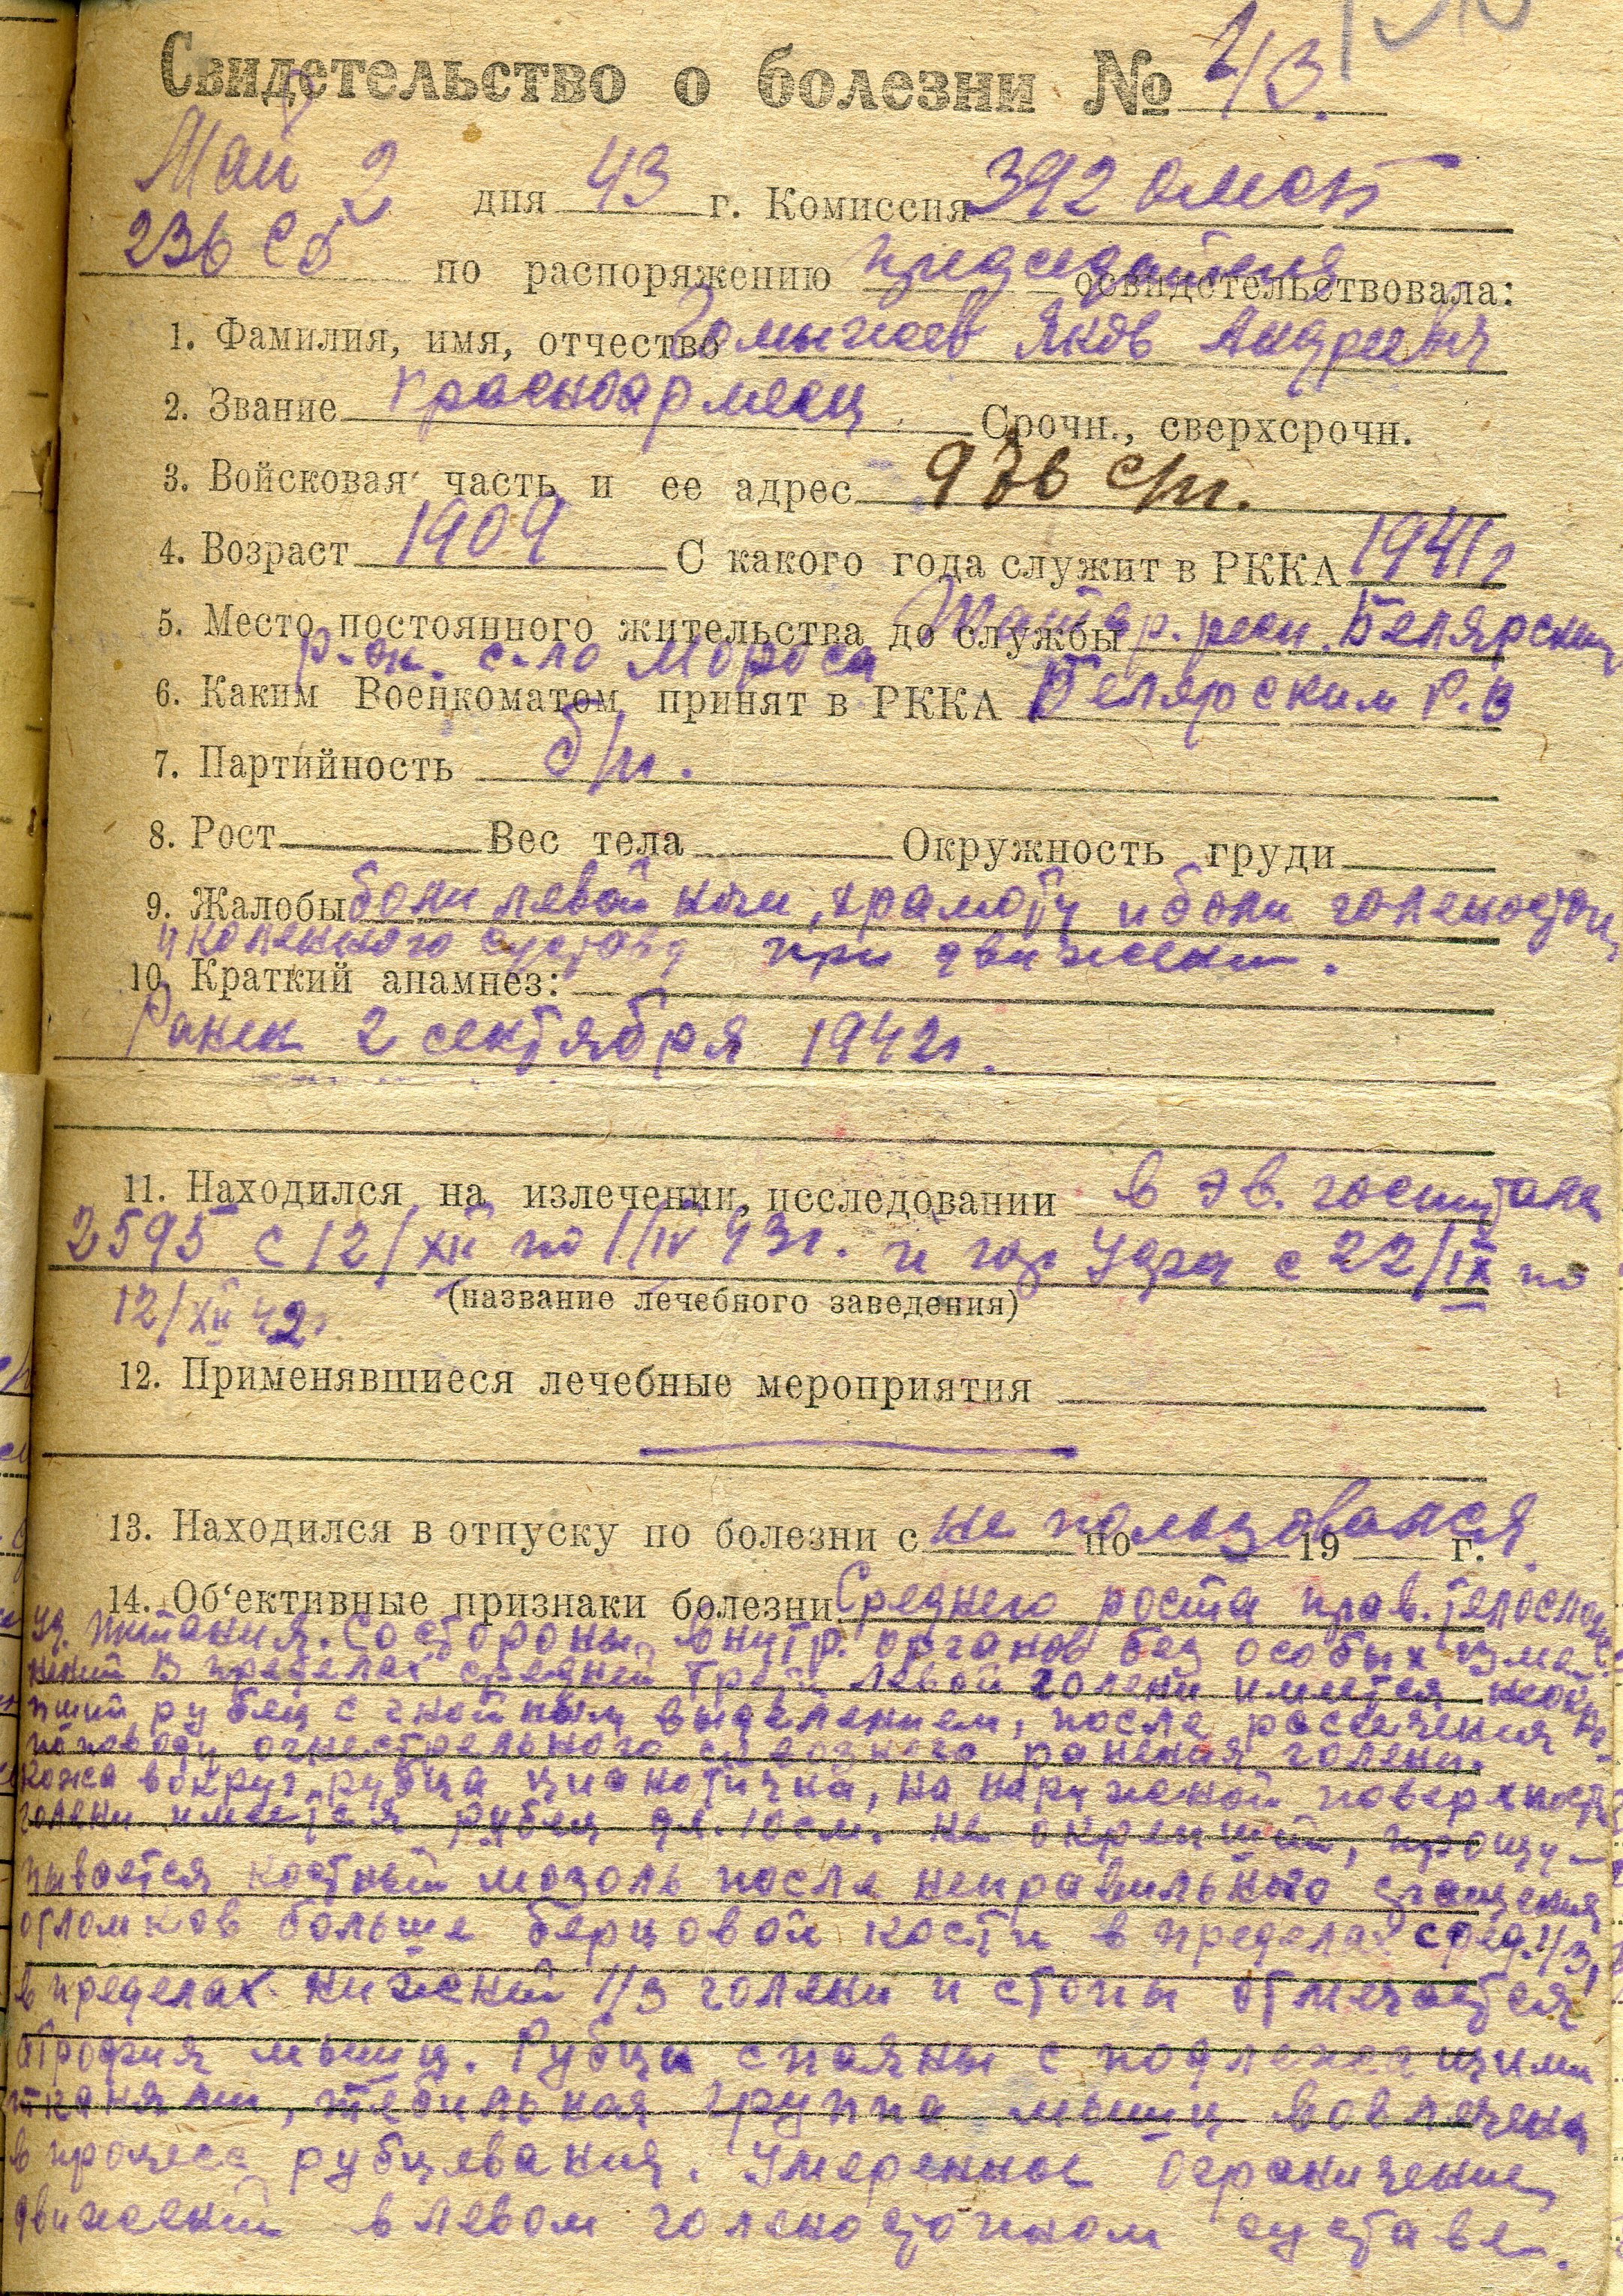 Свидетельство о болезни № 43.
Май 2 дня 43 г. Комиссия 392 омсб
236 сд по распоряжению председателя освидетельствовала:
1. Фамилия, имя, отчество Яков Андреевич
2. Звание красноармеец Срочн., сверхсрочн.
3. Войсковая часть и ее адрес с/п.
4. Возраст 1909 С какого года служит в РККА 1941 г
5. Место постоянного жительства до службы Татар. респ. Белярский
р-он. с-ло Мороса
6. Каким Военкоматом принят в РККА Белярским Р.В
7. Партийность б/п.
8. Рост Вес тела Окружность груди
9. Жалобы боли левой ноги, храмоту и боли голеностоп
и коленного сустава при движении.
10. Краткий анамнез:
Ранен 2 сентября 1942 г.
11. Находился на излечении, исследовании в эв. госпитале
2595 с 12/XII по 1/IV 43 г. и с 22/IX по
(название лечебного заведения)
12/XII 42 г.
12. Применявшиеся лечебные мероприятия
13. Находился в отпуску по болезни с не по льзовался 19 г.
14. Об‘ективные признаки болезни Среднего роста прав. телослож.
уд. питания. Со стороны внутр. органов без особых изме-
нений В пределах средней трети левой голени имеется неокре-
пший рубец с гнойным выделением, после рассечения
по поводу огнестрельного сквозного ранения голени.
кожа вокруг рубца цианотична, на наружной поверхности
голени имеется рубец дл. 10 см. не окрепший, прощу-
пывается костный мозоль после неправильного сращения
отломков больше берцовой кости в пределах сред. 1/3,
в пределах нижней 1/3 голени и стопы отмечается
атрофия мышц. Рубцы спаяны с подлежащими
тканями, группа мышц вовлечена
в процесс рубцевания. Умеренные ограничение
движений в левом голеностопном суставе.